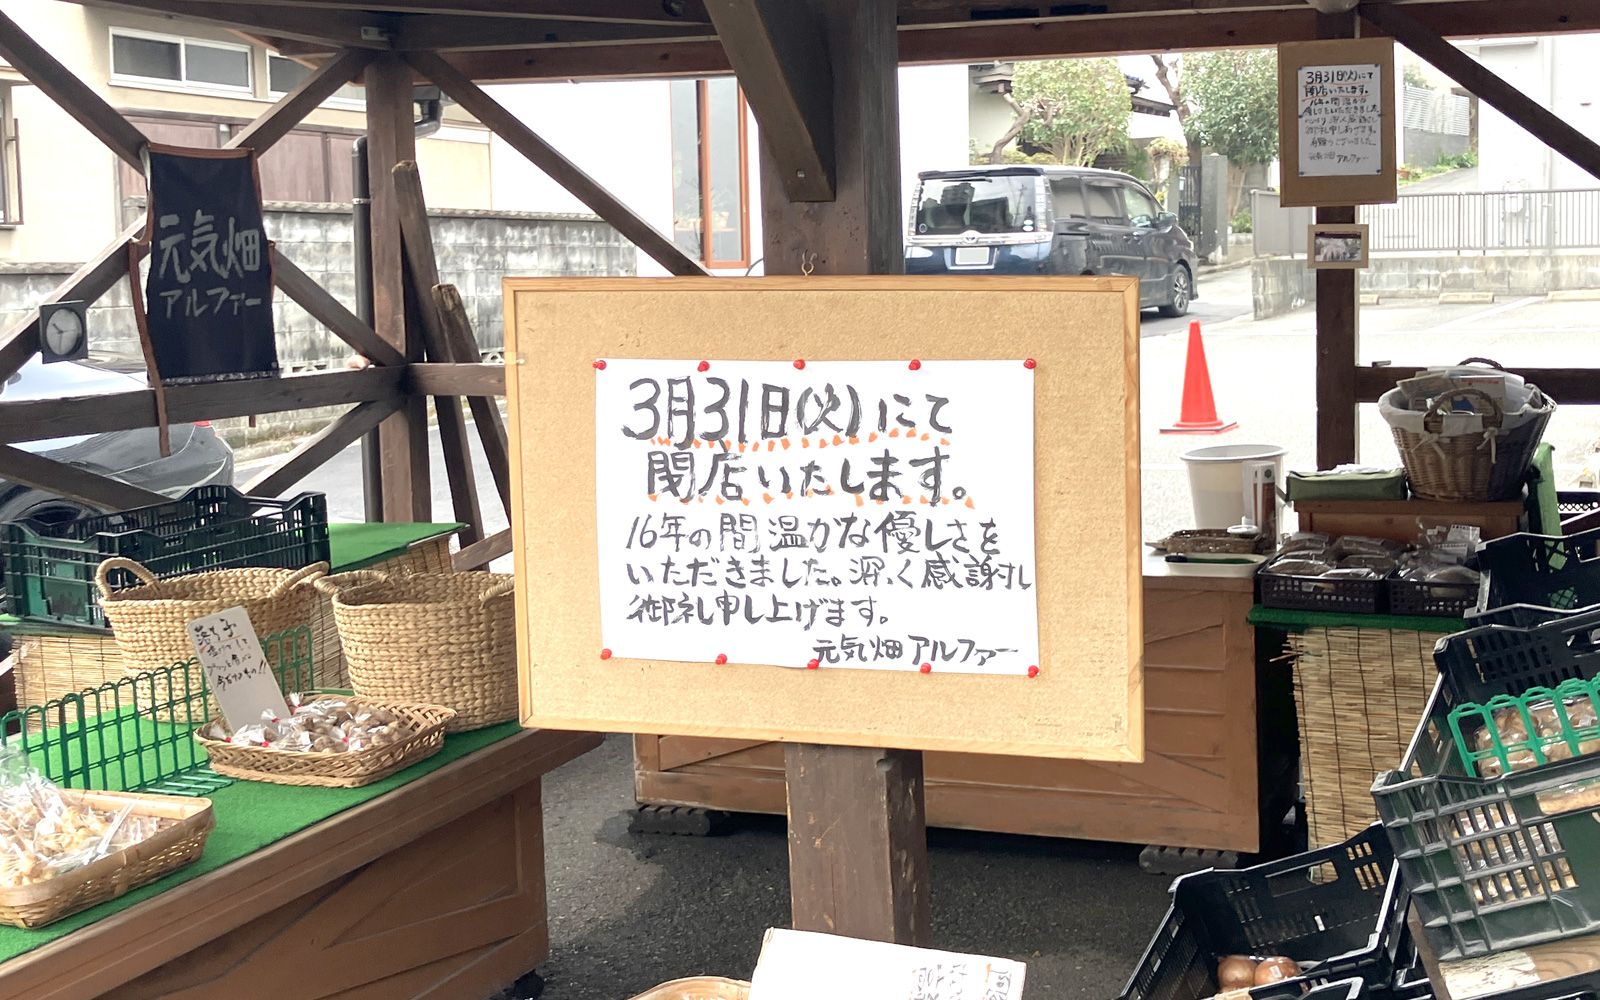 元気畑
アルファー
3月31日(火)にて
閉店いたします。
16年の間温かな優しさを
いただきました。深く感謝し
御礼申し上げます。
元気畑アルファー
3月31日(火)にて
閉店いたします。
16年の間温かな
元気畑アルファー
落ち子